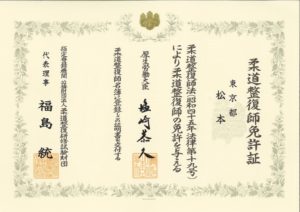 柔道整復師免許証
東京都
松本
柔道整復師法(昭和四十五年法律第十九号)
により柔道整復師の免許を与える
厚生労働大臣 塩崎恭久
柔道整復師名簿に登録した証明書を交付する
指定登録機関 公益財団法人柔道整復研修試験財団
代表理事 福島統